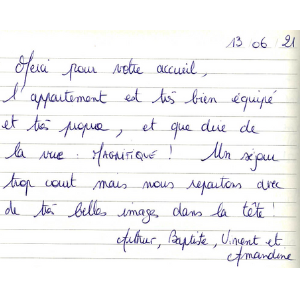 13 06 21
Merci pour votre accueil,
l'appartement est très bien équipé
et très propre, et que dire de
la vue : MAGNIFIQUE ! Un séjour
trop court mais nous repartons avec
de très belles images dans la tête !
Arthur, Baptiste, Vincent et
Amandine